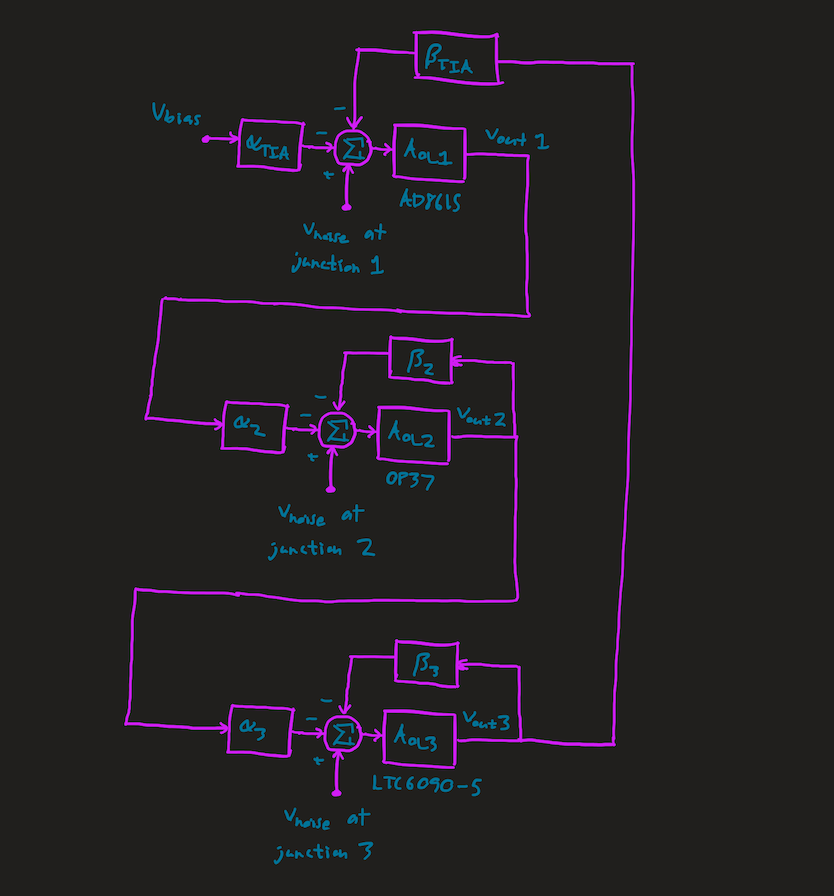 β_TIA
Vbias
−
−
α_TIA
Σ
A_OL1
Vout 1
+
AD8615
Vnoise at
junction 1
β2
−
−
α2
Σ
A_OL2
Vout2
+
OP37
Vnoise at
junction 2
β3
−
−
α3
Σ
A_OL3
Vout3
+
LTC6090-5
Vnoise at
junction 3